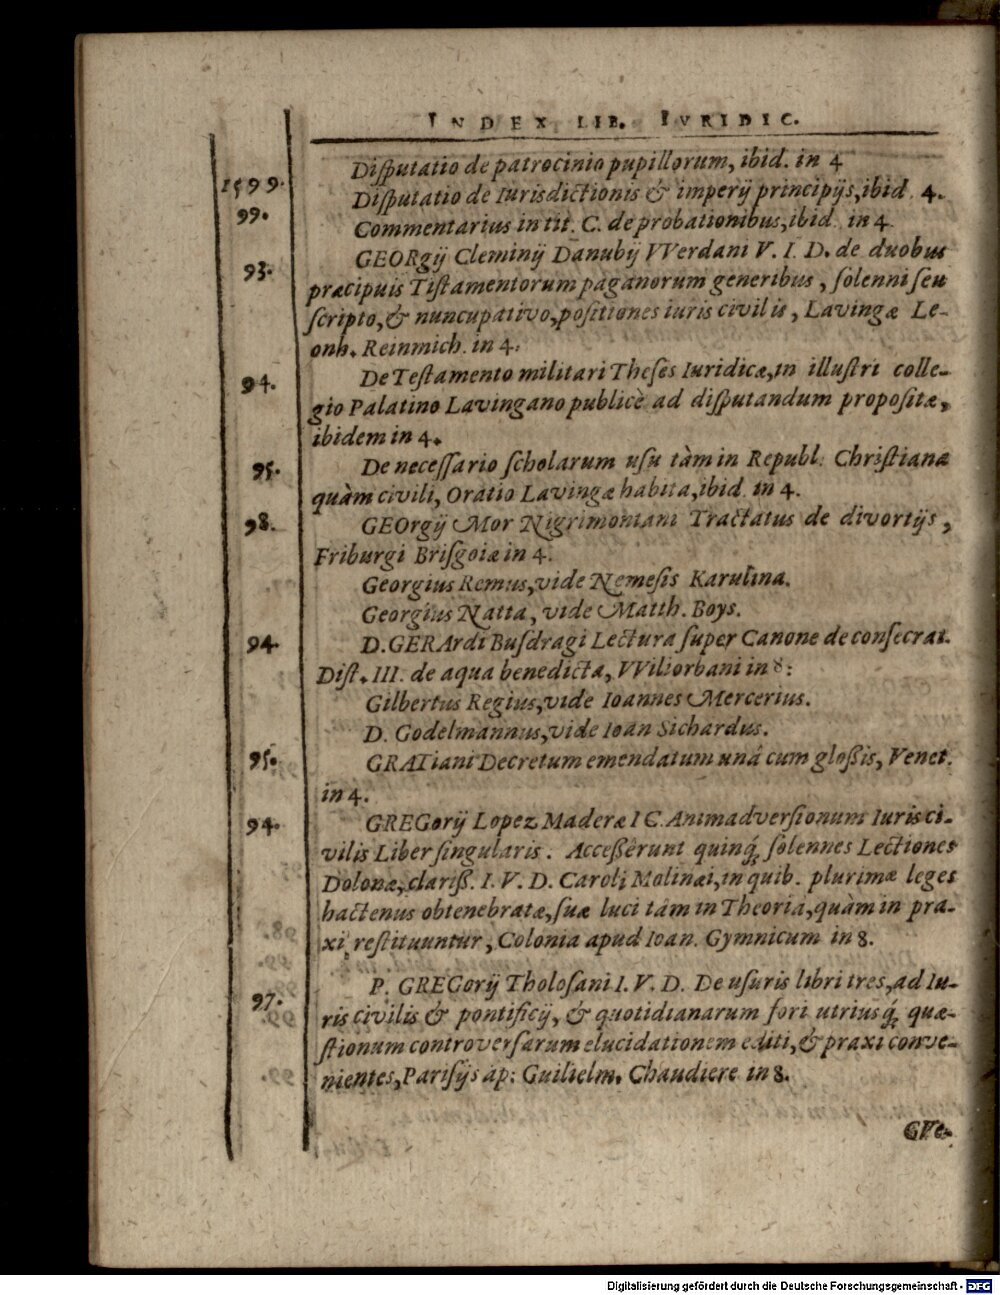 INDEX LIB. IVRIDIC.
Disputatio de patrocinio pupillorum, ibid. in 4
1599. Disputatio de Iurisdictionis & imperij principijs, ibid. 4.
99. Commentarius in tit. C. de probationibus, ibid. in 4.
93. GEORgij Cleminij Danubij VVerdani V. I. D. de duobus
præcipuis Tistamentorum paganorum generibus, solenni seu
scripto, & nuncupativo, positiones iuris civilis, Lavingæ Le-
onh. Reinmich. in 4.
94. De Testamento militari Theses Iuridicæ, in illustri colle-
gio Palatino Lavingano publicè ad disputandum propositæ,
ibidem in 4.
95. De necessario scholarum usu tàm in Republ. Christiana
quàm civili, Oratio Lavingæ habita, ibid. in 4.
98. GEOrgij Mor Nigrimontani Tractatus de divortijs,
Friburgi Brisgoiæ in 4.
Georgius Remus, vide Nemesis Karulina.
Georgius Natta, vide Matth. Boys.
94. D. GERArdi Busdragi Lectura super Canone de consecrat.
Dist. III. de aqua benedicta, VViliorbani in 8:
Gilbertus Regius, vide Ioannes Mercerius.
D. Godelmannus, vide Ioan Sichardus.
95. GRATiani Decretum emendatum unâ cum glossis, Venet.
in 4.
94. GREGorij Lopez Maderæ I C. Animadversionum Iuris ci-
vilis Liber singularis. Accessêrunt quinq; solennes Lectiones
Dolonæ, clariss. I. V. D. Caroli Molinæi, in quib. plurimæ leges
hactenus obtenebratæ, suæ luci tàm in Theoria, quàm in pra-
xi restituuntur, Colonia apud Ioan. Gymnicum in 8.
97. P. GREGorij Tholosani I. V. D. De usuris libri tres, ad Iu-
ris civilis & pontificij, & quotidianarum fori utriusq; quæ-
stionum controversarum elucidationem editi, & praxi conve-
nientes, Parisijs ap: Guilielm. Chaudiere in 8.
GVe-
Digitalisierung gefördert durch die Deutsche Forschungsgemeinschaft - DFG